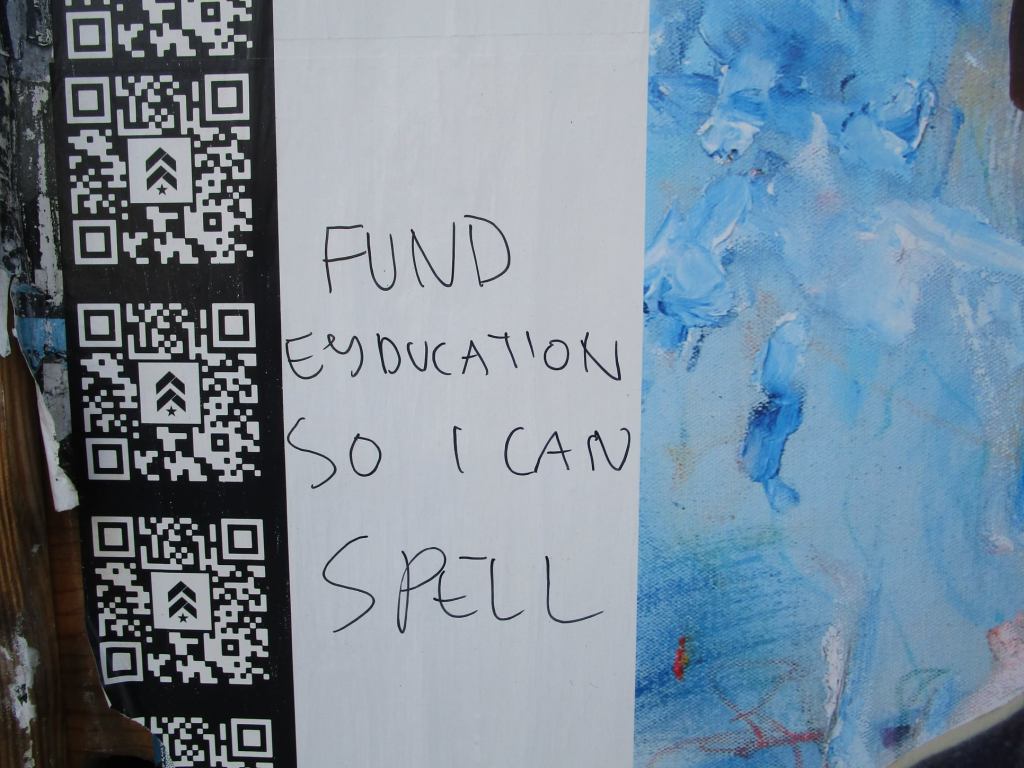 FUND
EYDUCATION
SO I CAN
SPELL